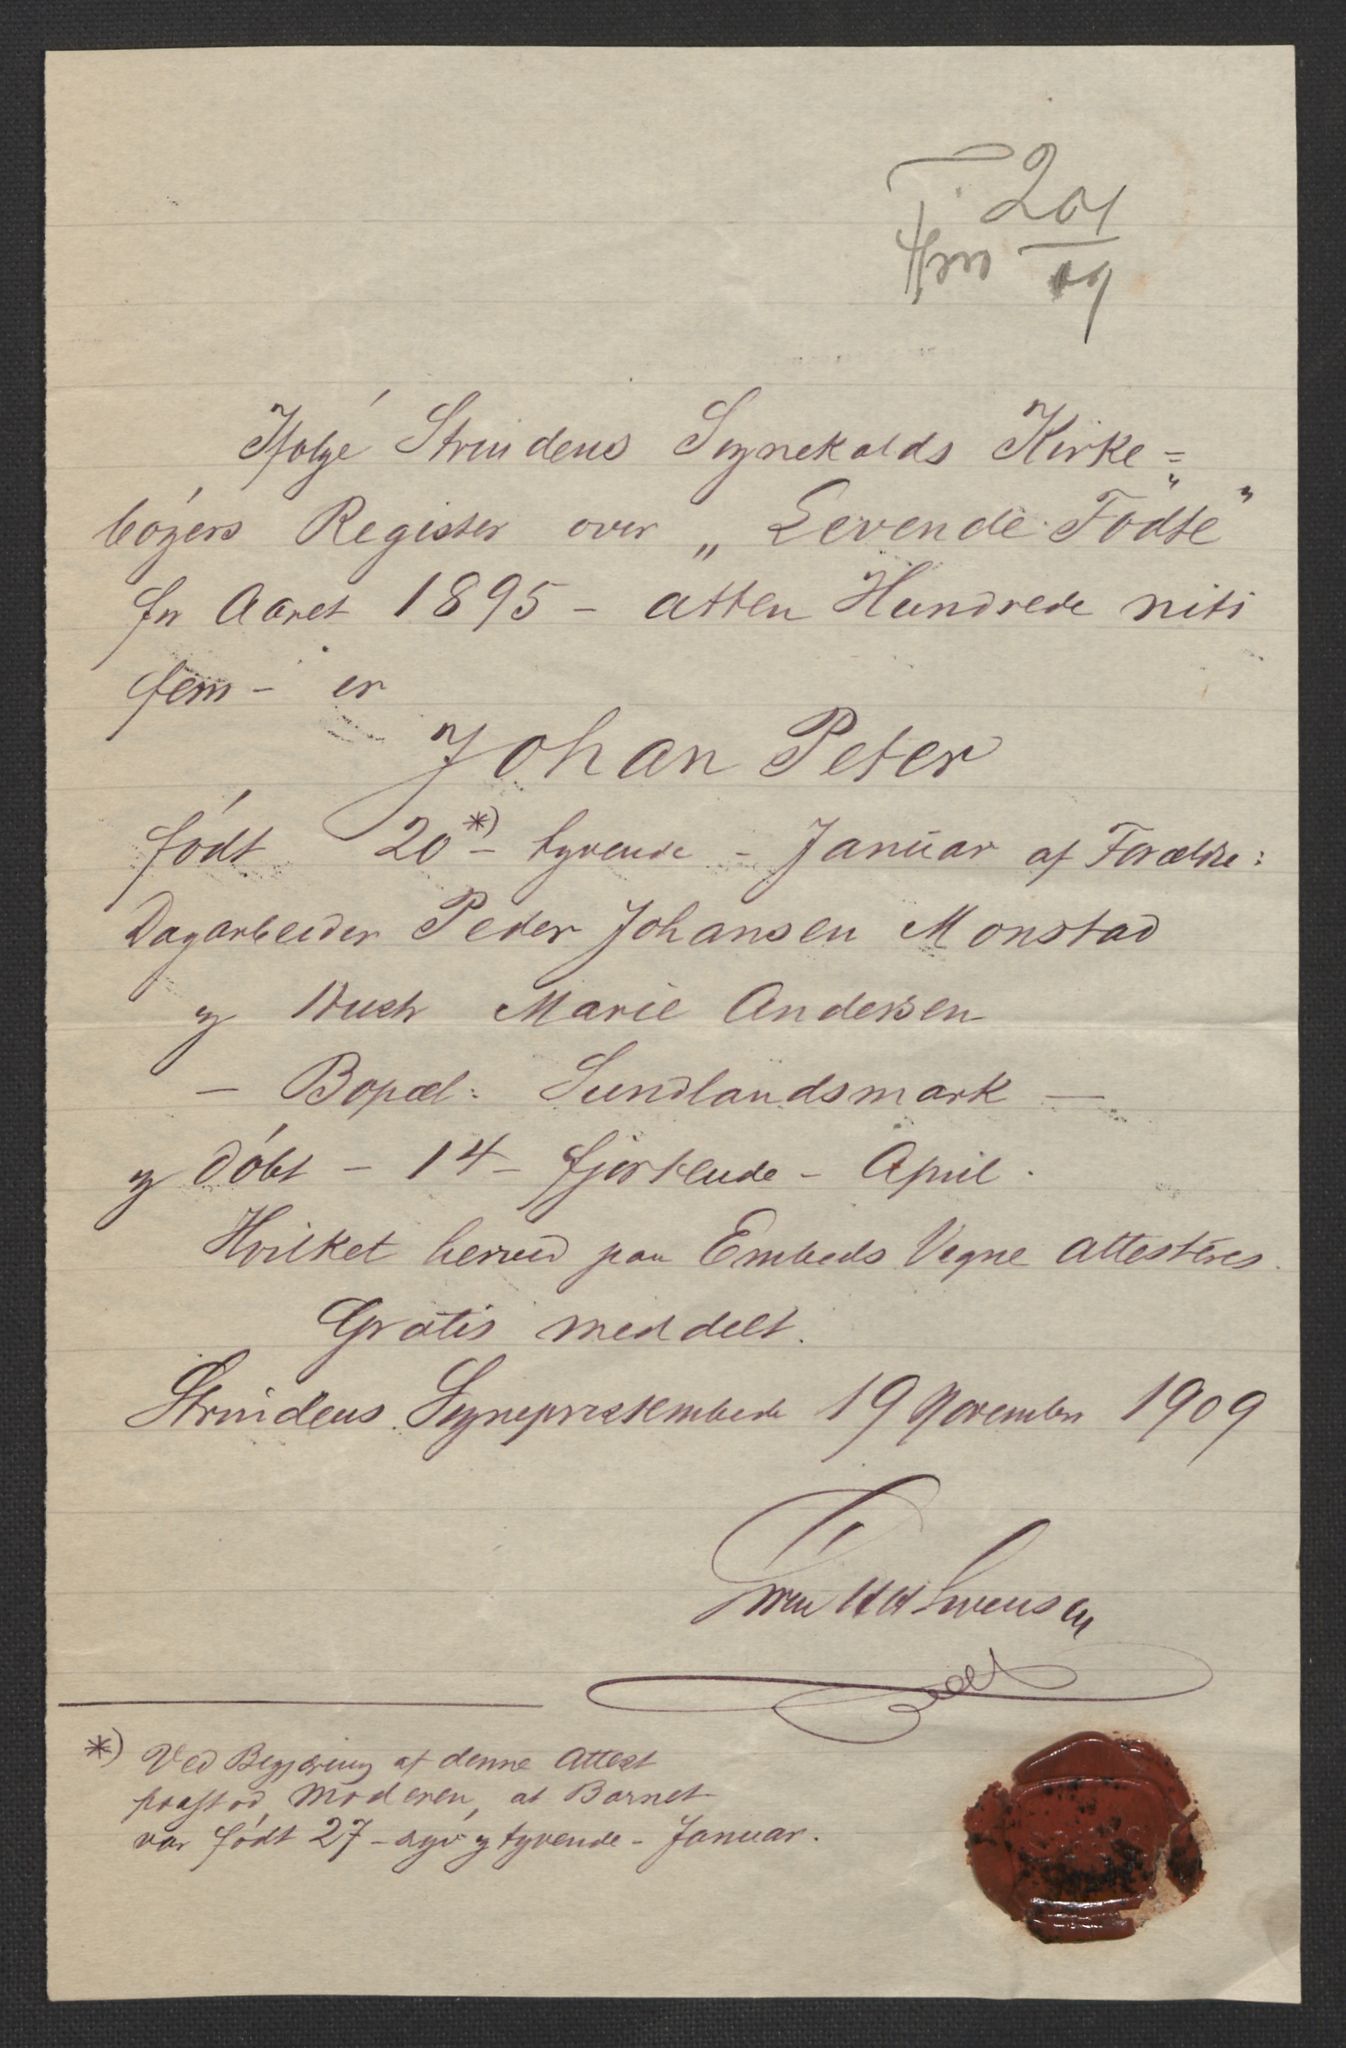 201
09
Ifølge Strindens Sognekalds Kirke=
bøgers Register over „Levende Fødte"
for Aaret 1895 - atten Hundrede niti
fem - er
Johan Peter
født 20*) - tyvende - Januar af Forældre:
Dagarbeider Peder Johansen Monstad
og Hust Marie Andersen
- Bopæl: Sundlandsmark -
og døbt - 14 - fjortende - April.
Hvilket herved paa Embeds Vegne attesteres.
Gratis meddelt.
Strindens Sogneprestembede 19 November 1909
*) Ved Begjæring af denne Attest
paastod Moderen, at Barnet
var født 27 - syv og tyvende - Januar.